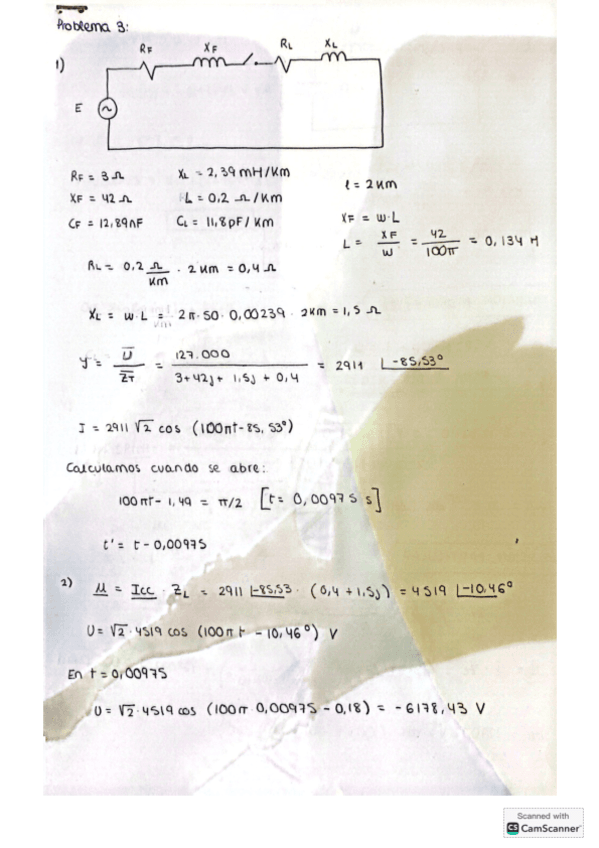 Problema 3:
1)
RF XF RL XL
E
RF = 3 Ω XL = 2,39 mH/Km l = 2 Km
XF = 42 Ω RL = 0,2 Ω/Km
CF = 12,89 nF CL = 11,8 pF/Km XF = W·L
L = XF/W = 42/100π = 0,134 H
RL = 0,2 Ω/Km · 2 Km = 0,4 Ω
XL = W·L = 2π·50·0,00239 · 2Km = 1,5 Ω
I = U/ZT = 127.000/(3+42j+1,5j+0,4) = 2911 ∟-85,53°
I = 2911 √2 cos (100πt-85,53°)
Calculamos cuando se abre:
100πt - 1,49 = π/2 [t = 0,00975 s]
t' = t - 0,00975
2) U = Icc · ZL = 2911 ∟-85,53 · (0,4 + 1,5j) = 4519 ∟-10,46°
U = √2 · 4519 cos (100πt - 10,46°) V
En t = 0,00975
U = √2 · 4519 cos (100π·0,00975 - 0,18) = -6178,43 V
Scanned with
CS CamScanner